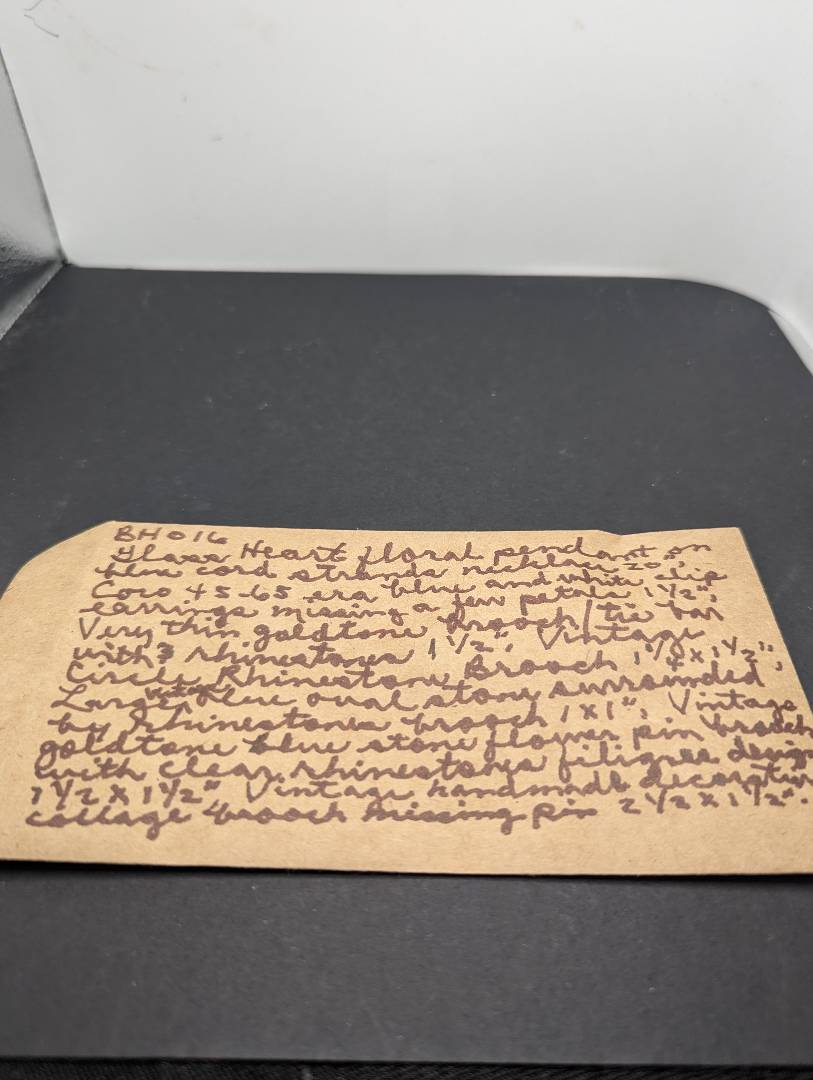 BH016
Glass Heart floral pendant on
blue cord strands necklace 20";
Coro 45-65 era blue and white clip
earrings missing a few petals 1 1/2";
Very thin goldtone brooch/tie bar
with 3 rhinestones 1 1/2"; Vintage
Circle Rhinestone Brooch 1 1/4 x 1 1/2";
Large vintage blue oval stone surrounded
by Rhinestones brooch 1x1"; Vintage
goldtone blue stone flower pin brooch
with clear rhinestones filigree design
1 1/2 x 1 1/2" Vintage handmade decorative
collage brooch missing pin 2 1/2 x 1 1/2".